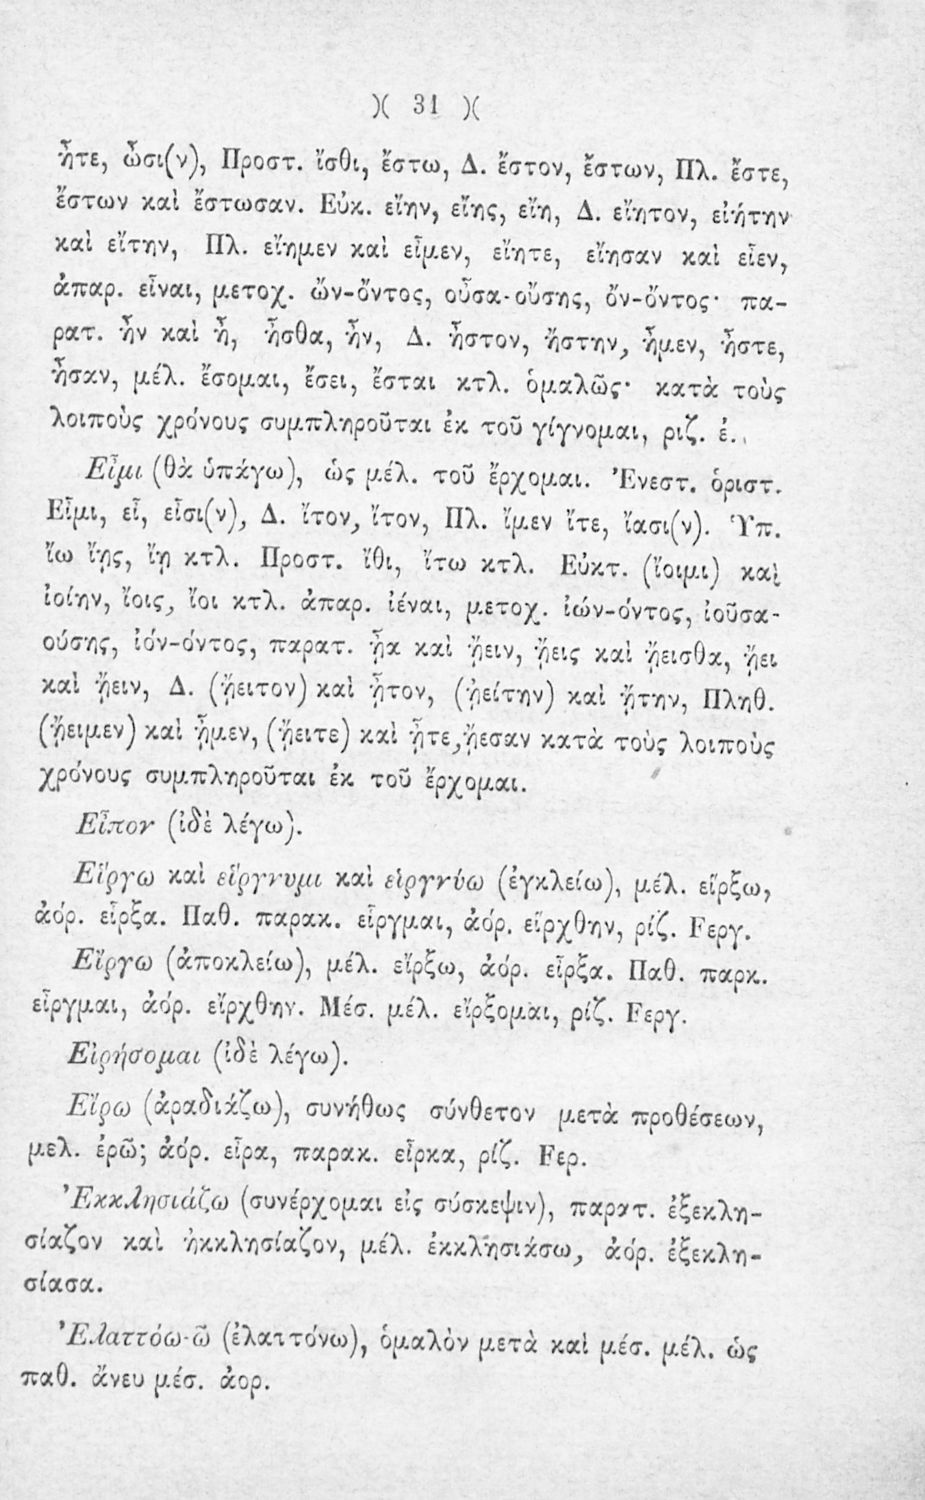 )( 31 )(
ἦτε, ὦσι(ν), Προστ. ἴσθι, ἔστω, Δ. ἔστον, ἔστων, Πλ. ἔστε,
ἔστων καὶ ἔστωσαν. Εὐκ. εἴην, εἴης, εἴη, Δ. εἴητον, εἰήτην
καὶ εἴτην, Πλ. εἴημεν καὶ εἶμεν, εἴητε, εἴησαν καὶ εἶεν,
ἀπαρ. εἶναι, μετοχ. ὤν-ὄντος, οὖσα-οὔσης, ὄν-ὄντος· πα-
ρατ. ἦν καὶ ἦ, ἦσθα, ἦν, Δ. ἦστον, ἤστην, ἦμεν, ἦστε,
ἦσαν, μέλ. ἔσομαι, ἔσει, ἔσται κτλ. ὁμαλῶς· κατὰ τοὺς
λοιποὺς χρόνους συμπληροῦται ἐκ τοῦ γίγνομαι, ριζ. ἐ..
Εἶμι (θὰ ὑπάγω), ὡς μέλ. τοῦ ἔρχομαι. Ἐνεστ. ὁριστ.
Εἶμι, εἶ, εἶσι(ν), Δ. ἴτον, ἴτον, Πλ. ἴμεν ἴτε, ἴασι(ν). Ὑπ.
ἴω ἴῃς, ἴῃ κτλ. Προστ. ἴθι, ἴτω κτλ. Εὐκτ. (ἴοιμι) καὶ
ἰοίην, ἴοις, ἴοι κτλ. ἀπαρ. ἰέναι, μετοχ. ἰών-όντος, ἰοῦσα-
ούσης, ἰόν-όντος, παρατ. ᾖα καὶ ᾔειν, ᾔεις καὶ ᾔεισθα, ᾔει
καὶ ᾔειν, Δ. (ᾔειτον) καὶ ᾖτον, (ᾐείτην) καὶ ᾔτην, Πληθ.
(ᾔειμεν) καὶ ᾖμεν, (ᾔειτε) καὶ ᾖτε, ᾔεσαν κατὰ τοὺς λοιποὺς
χρόνους συμπληροῦται ἐκ τοῦ ἔρχομαι.
Εἶπον (ἰδὲ λέγω).
Εἵργω καὶ εἵργνυμι καὶ εἱργνύω (ἐγκλείω), μέλ. εἵρξω,
ἀόρ. εἷρξα. Παθ. παρακ. εἷργμαι, ἀόρ. εἵρχθην, ρίζ. Ϝεργ.
Εἴργω (ἀποκλείω), μέλ. εἴρξω, ἀόρ. εἶρξα. Παθ. παρκ.
εἶργμαι, ἀόρ. εἴρχθην. Μέσ. μέλ. εἴρξομαι, ρίζ. Ϝεργ.
Εἰρήσομαι (ἰδὲ λέγω).
Εἴρω (ἀραδιάζω), συνήθως σύνθετον μετὰ προθέσεων,
μελ. ἐρῶ; ἀόρ. εἶρα, παρακ. εἶρκα, ρίζ. Ϝερ.
Ἐκκλησιάζω (συνέρχομαι εἰς σύσκεψιν), παρατ. ἐξεκλη-
σίαζον καὶ ἠκκλησίαζον, μέλ. ἐκκλησιάσω, ἀόρ. ἐξεκλη-
σίασα.
Ἐλαττόω-ῶ (ἐλαττόνω), ὁμαλὸν μετὰ καὶ μέσ. μέλ. ὡς
παθ. ἄνευ μέσ. ἀορ.